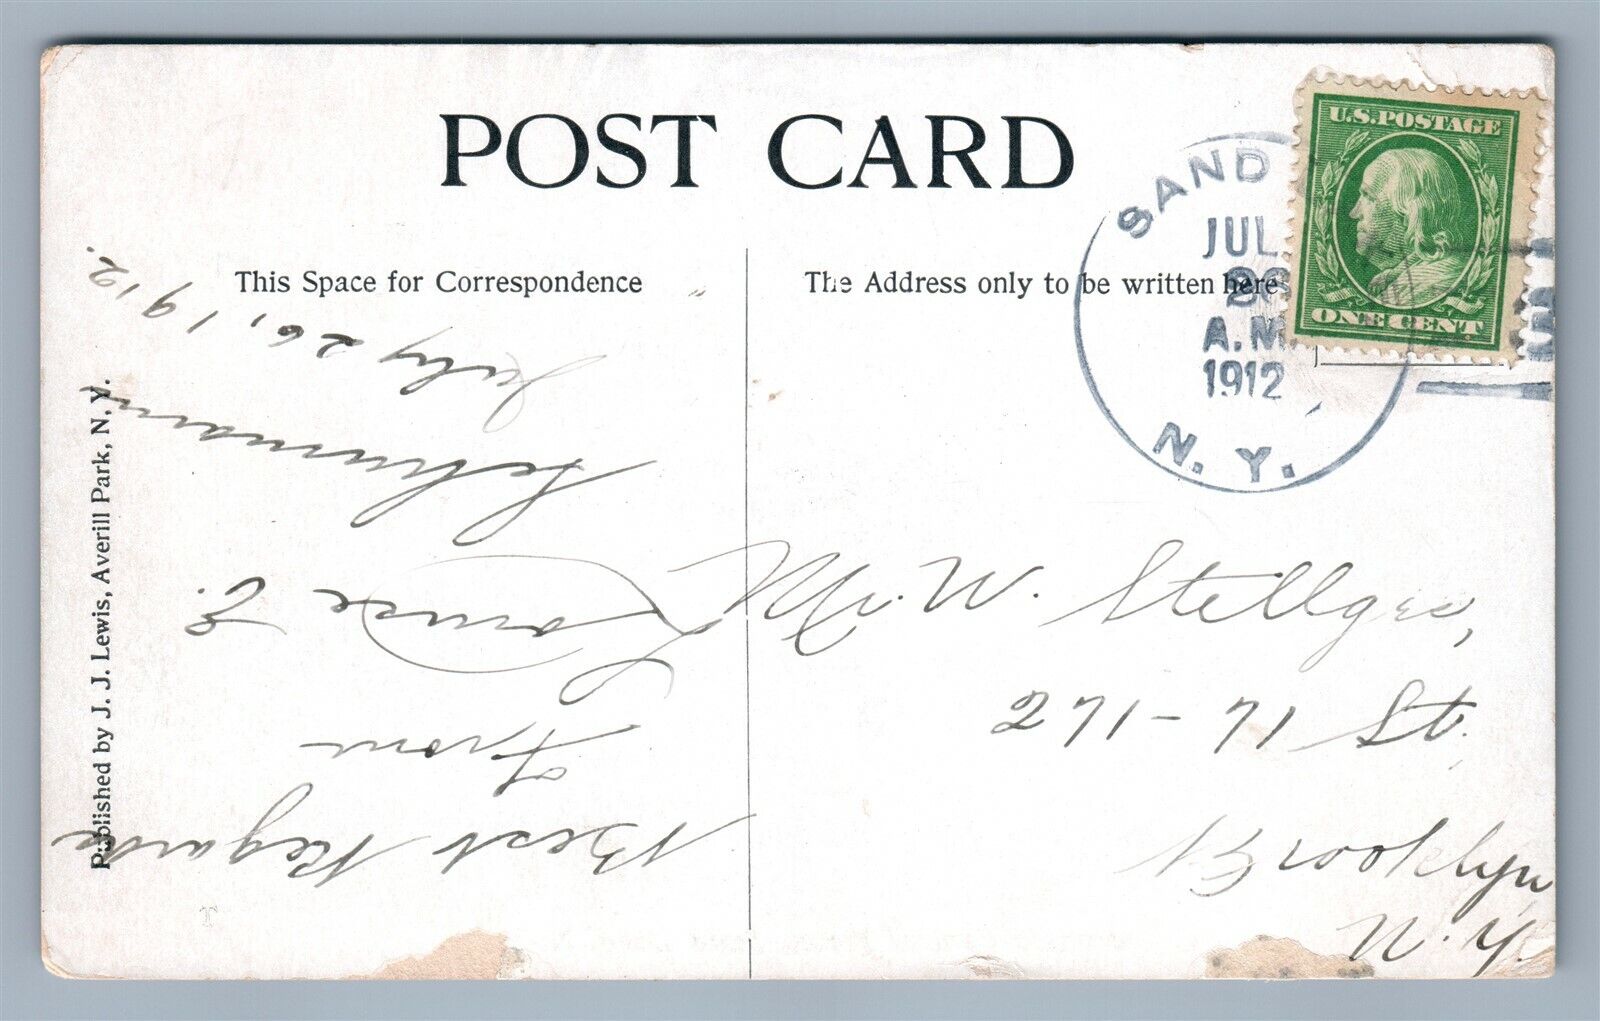 POST CARD
This Space for Correspondence
The Address only to be written here
U.S. POSTAGE
ONE CENT
SAND
JUL
26
A.M
1912
N. Y.
Best Regards
From
Louise E.
Schumann
July 26, 1912.
Mr. W. Stellges,
271-71 St.
Brooklyn
N.Y.
Published by J. J. Lewis, Averill Park, N. Y.